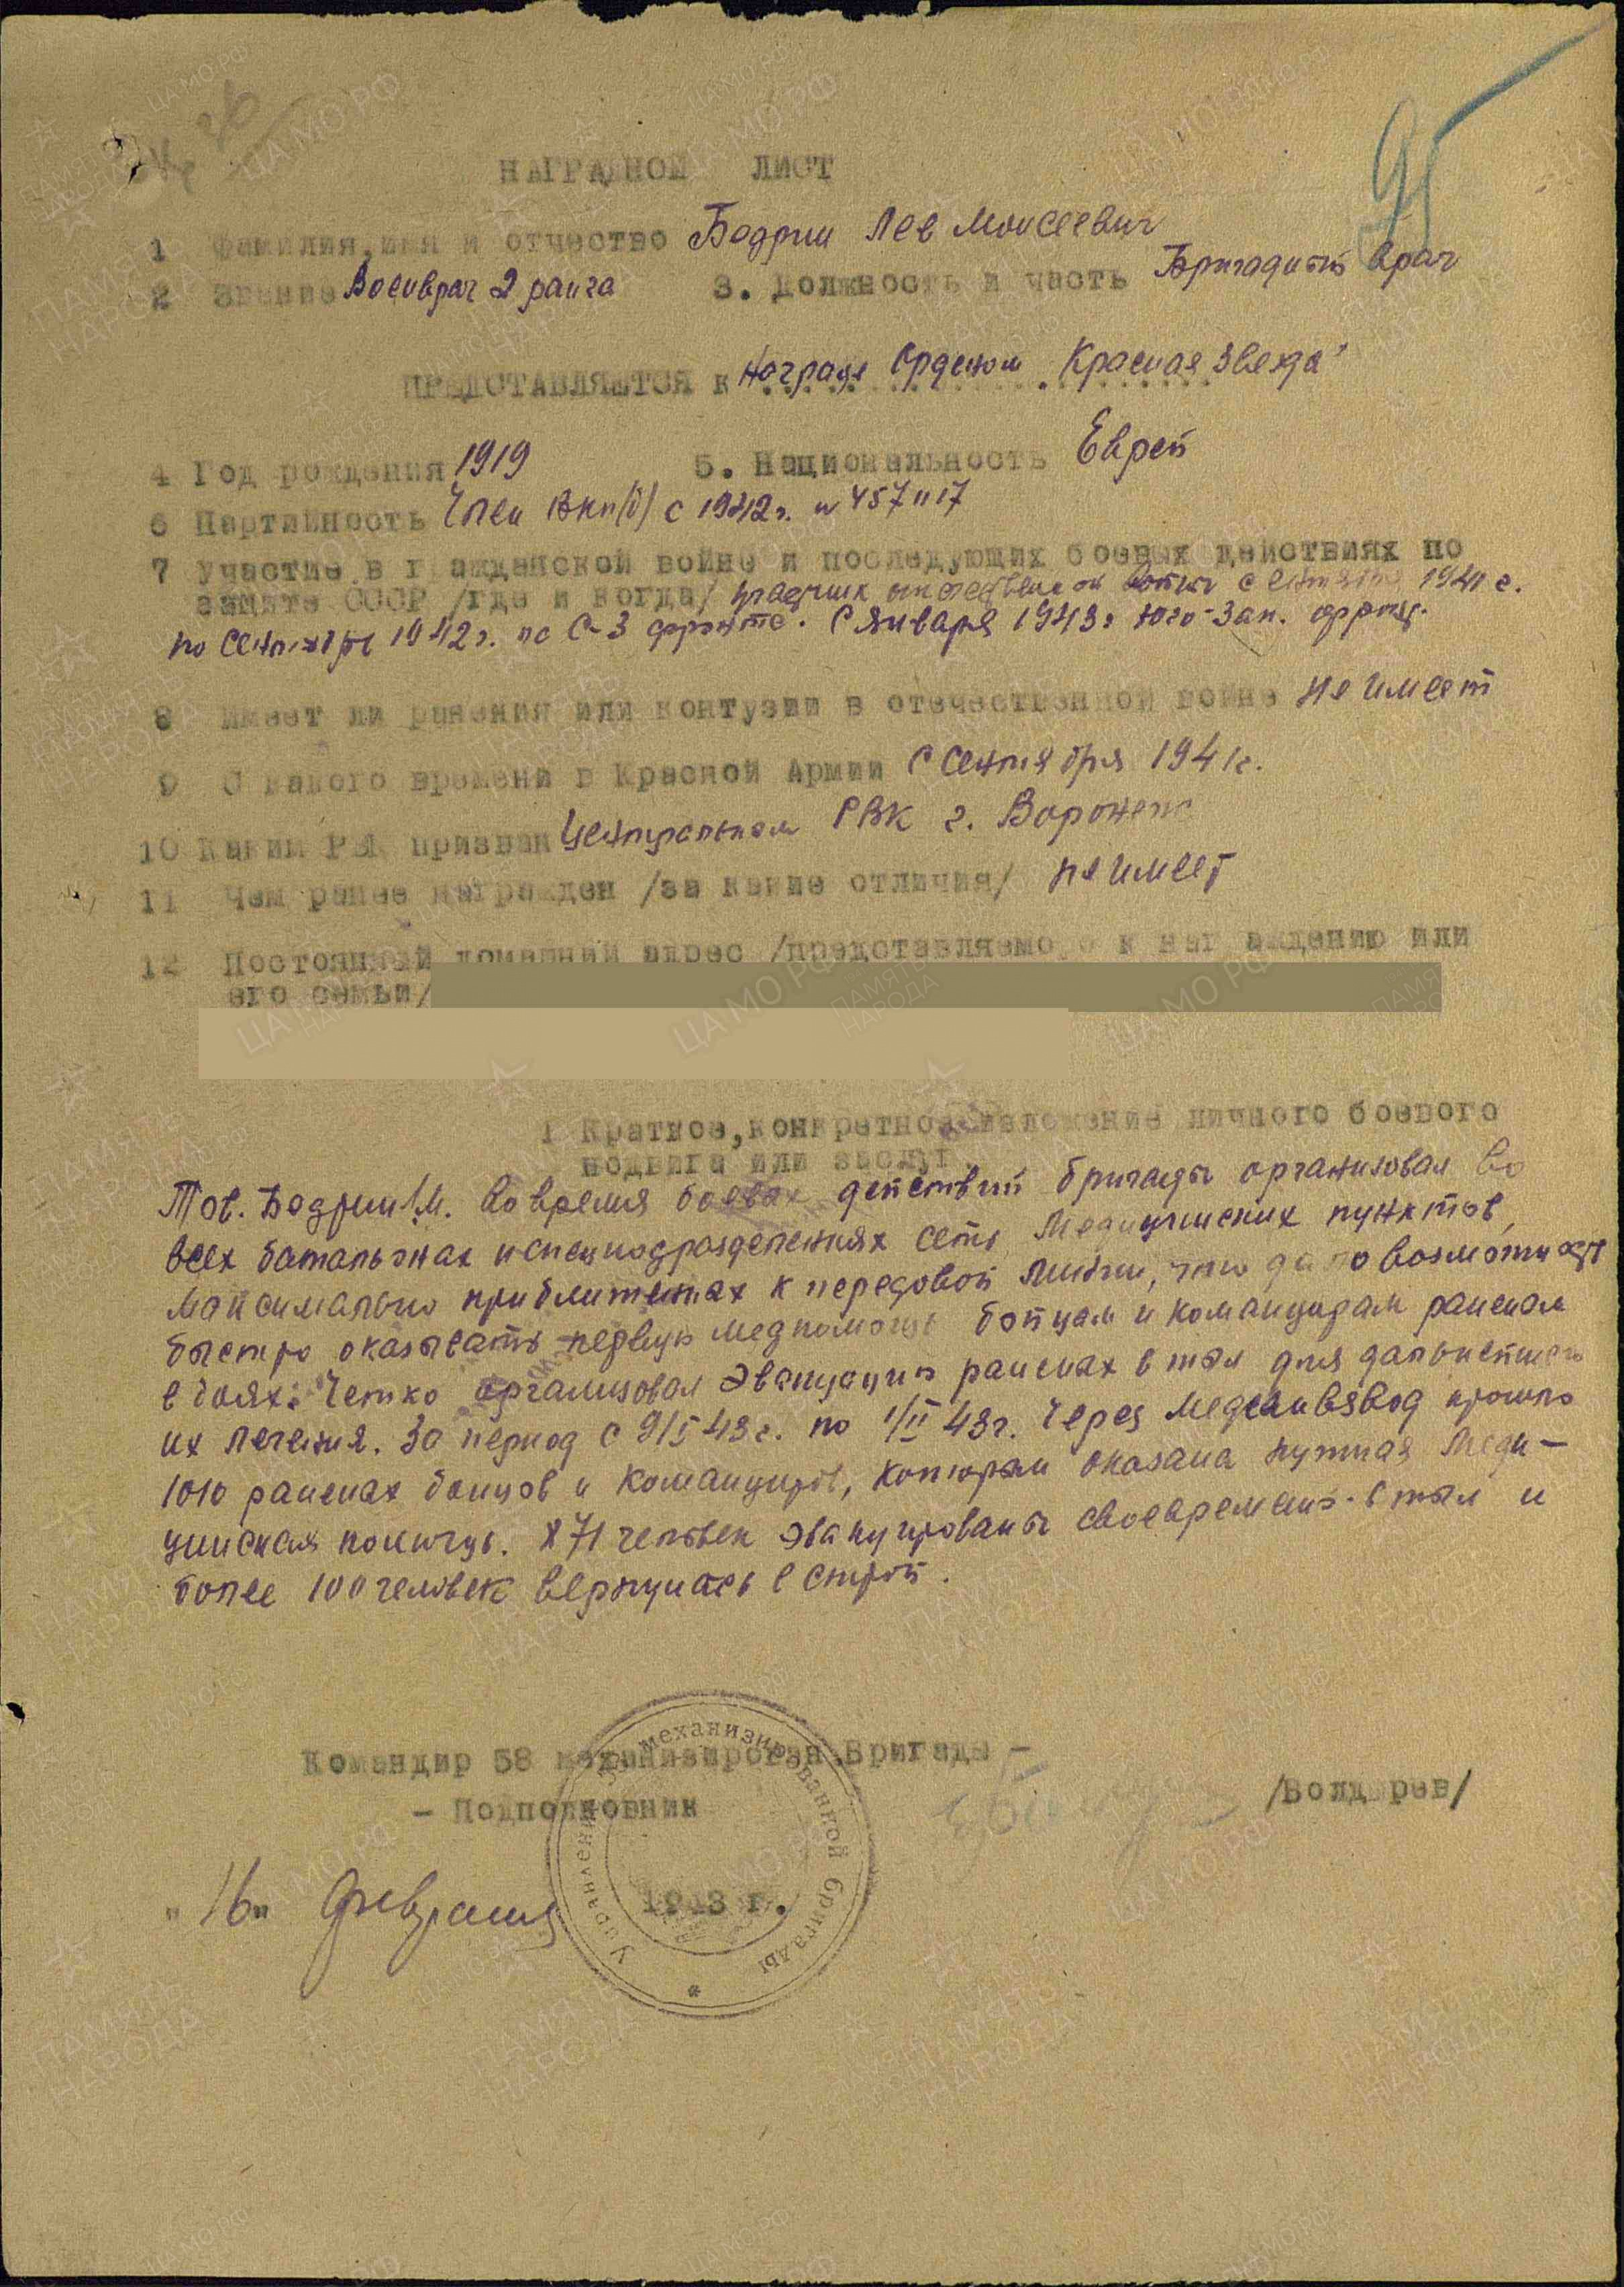 95
НАГРАДНОЙ ЛИСТ
1 Фамилия, имя и отчество Бодрин Лев Моисеевич
2 Звание Военврач 2 ранга 3. Должность и часть Бригадный врач
ПРЕДСТАВЛЯЕТСЯ к Награде Орденом "Красная Звезда"
4 Год рождения 1919 5. Национальность Еврей
6 Партийность Член ВКП(б) с 1942г. №
7 Участие в гражданской войне и последующих боевых действиях по
защите СССР /где и когда/ участник отечественной войны с сентября 1941 г.
по сентябрь 1942г. по С-З фронте. С января 1943г Юго-Зап. фронт.
8 Имеет ли ранения или контузии в отечественной войне не имеет
9 С какого времени в Красной Армии с сентября 1941г.
10 Каким РВК призван Центральном РВК г. Воронеж
11 Чем ранее награжден /за какие отличия/ не имеет
12 Постоянный домашний адрес /представляемого к награждению или
его семьи/
1 Краткое, конкретное изложение личного боевого
подвига или заслуг
Тов. Бодрин Л.М. во время боевых действий бригады организовал во
всех батальонах и спецподразделениях сеть медицинских пунктов,
максимально приближенных к передовой линии, что дало возможность
быстро оказывать первую медпомощь бойцам и командирам раненым
в боях. Четко организовал эвакуацию раненых в тыл для дальнейшего
их лечения. За период с 9/I 43г. по 1/II 43г. Через медсанвзвод прошло
1010 раненых бойцов и командиров, которым оказана нужная меди-
цинская помощь. 871 человек эвакуированы своевременно в тыл и
более 100 человек вернулась в строй.
Командир 58 механизирован. Бригады -
- Подполковник /Болдырев/
"16" февраля 1943 г.
Управление механизированной бригады